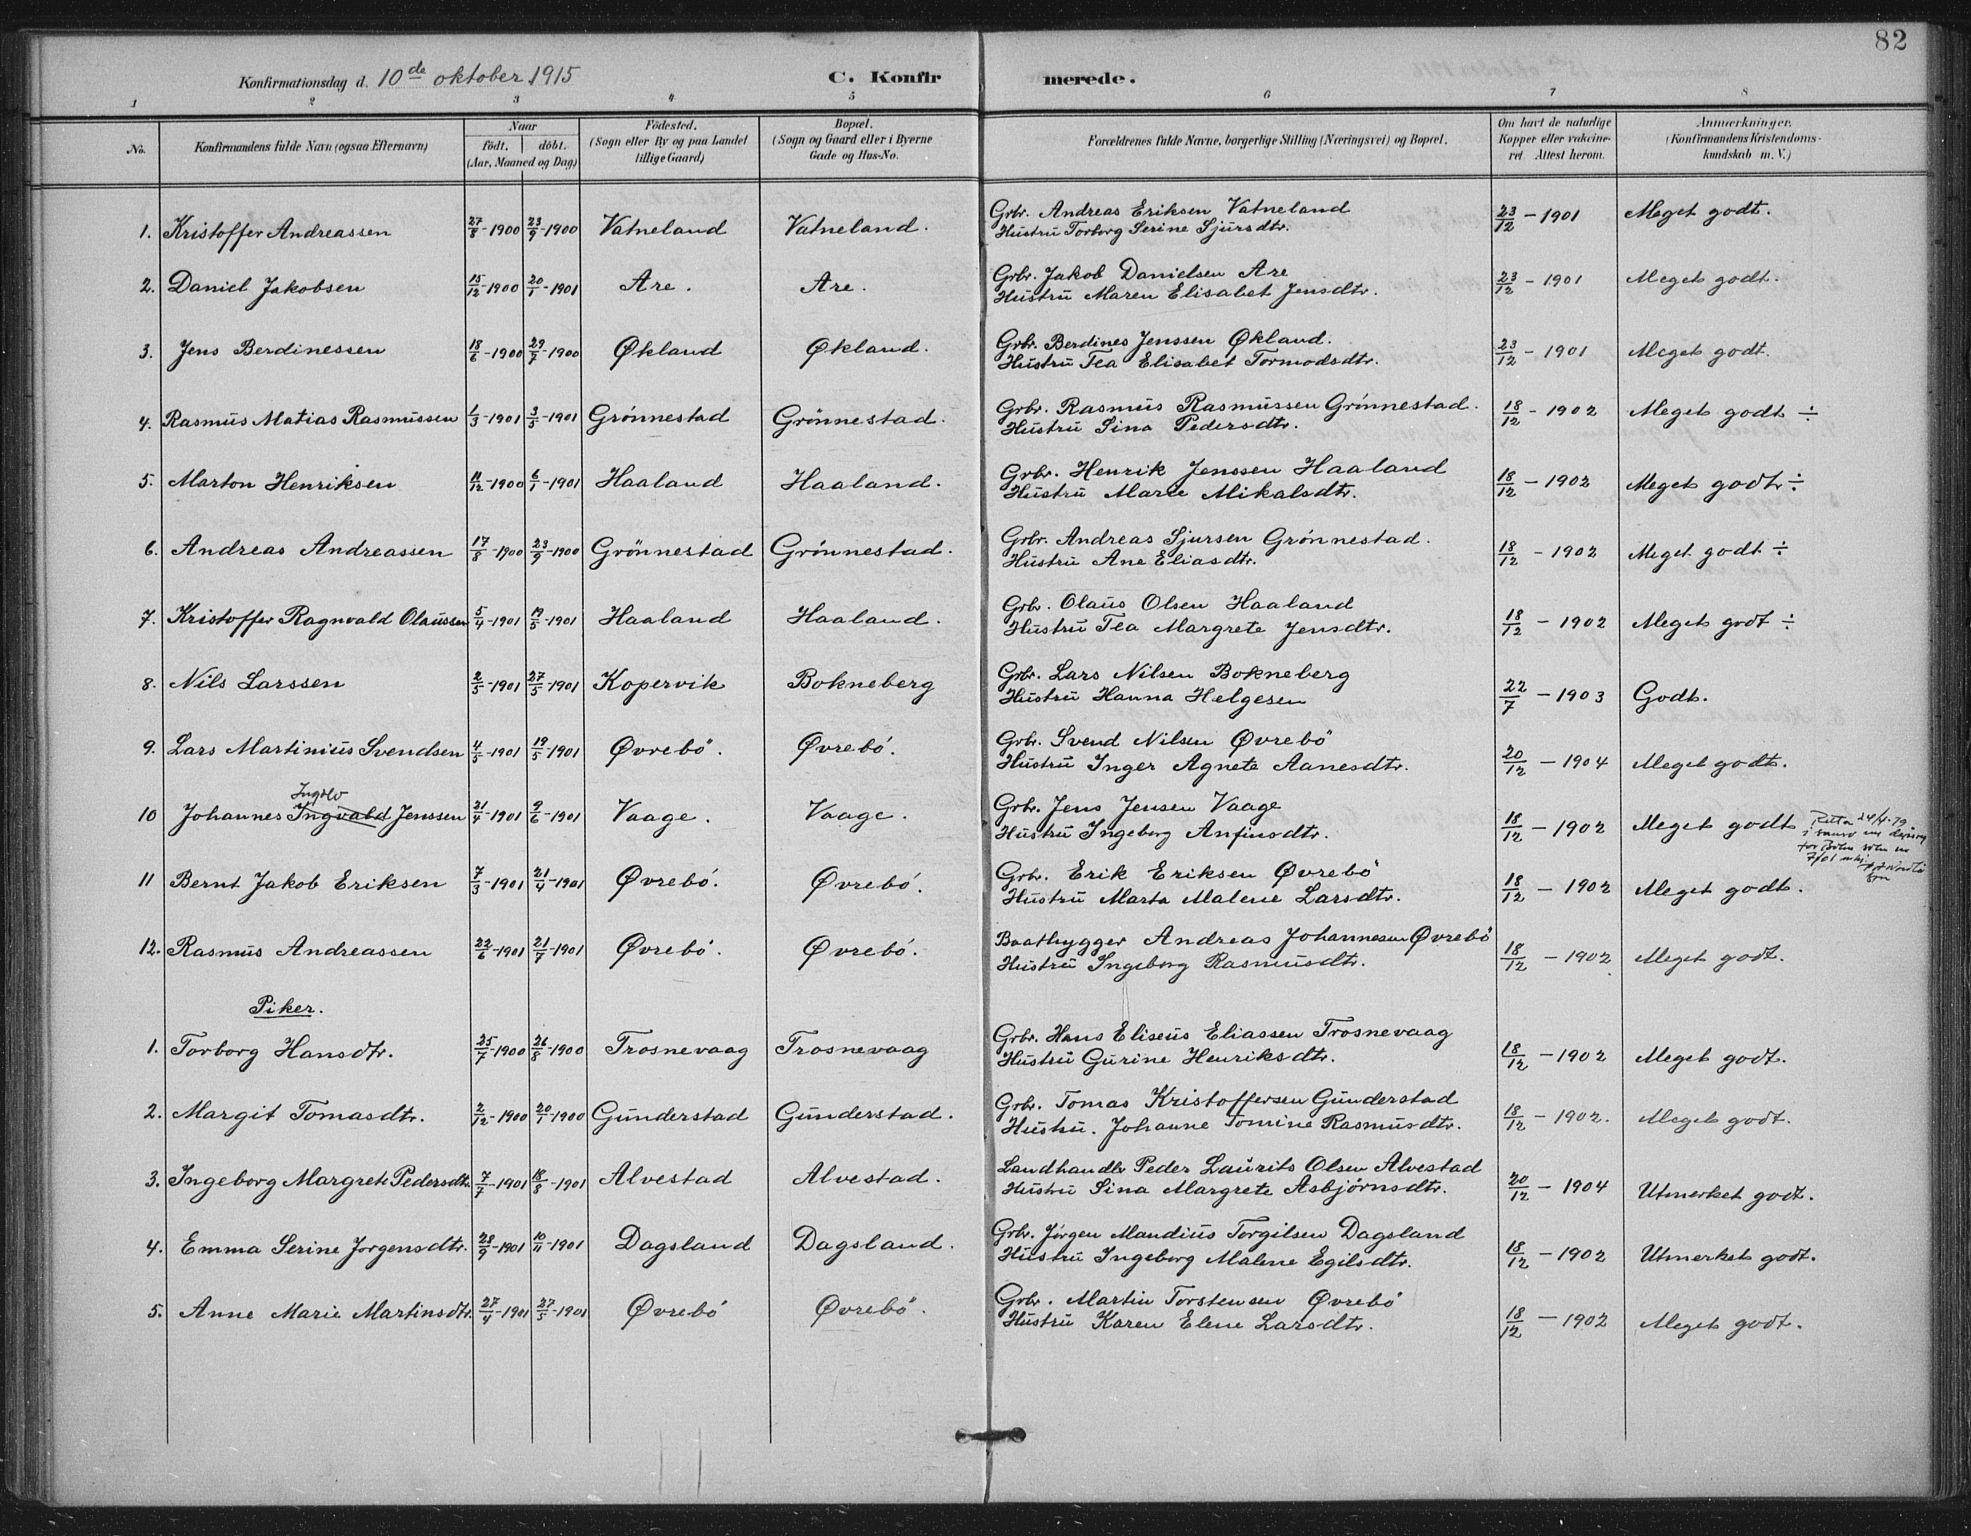 82
Konfirmationsdag d. 10de oktober 1915 C. Konfirmerede.
1 2 3 4 5 6 7 8
No. Konfirmandens fulde Navn (ogsaa Efternavn) Naar født. døbt. (Aar, Maaned og Dag) Fødested. (Sogn eller By og paa Landet tillige Gaard) Bopæl. (Sogn og Gaard eller i Byerne Gade og Hus-No. Forældrenes fulde Navne, borgerlige Stilling (Næringsvei) og Bopæl. Om havt de naturlige Kopper eller vakcineret. Attest herom. Anmærkninger. (Konfirmandens Kristendomskundskab m. V.)
1. Kristoffer Andreassen 27/8-1900 23/9-1900 Vatneland Vatneland. Grbr. Andreas Eriksen Vatneland 23/12 - 1901 Meget godt.
Hustru Torborg Serine Sjursdtr.
2. Daniel Jakobsen 15/12-1900 20/1-1901 Are. Are. Grbr. Jakob Danielsen Are 23/12 - 1901 Meget godt.
Hustru Maren Elisabet Jensdtr.
3. Jens Berdinessen 18/6-1900 29/7-1900 Økland Økland. Grbr. Berdines Jenssen Økland. 23/12 - 1901 Meget godt.
Hustru Tea Elisabet Tormodsdtr.
4. Rasmus Matias Rasmussen 1/3-1901 3/5-1901 Grönnestad Grönnestad. Grbr. Rasmus Rasmussen Grönnestad. 18/12 - 1902 Meget godt ÷
Hustru Sina Pedersdtr.
5. Marton Henriksen 11/12-1900 6/1-1901 Haaland Haaland. Grbr. Henrik Jenssen Haaland 18/12 - 1902 Meget godt ÷
Hustru Marie Mikalsdtr.
6. Andreas Andreassen 17/8-1900 23/9-1900 Grönnestad Grönnestad. Grbr. Andreas Sjursen Grönnestad. 18/12 - 1902 Meget godt ÷
Hustru Ane Eliasdtr.
7. Kristoffer Ragnvald Olaussen 5/4-1901 19/5-1901 Haaland Haaland. Grbr. Olaus Olsen Haaland 18/12 - 1902 Meget godt ÷
Hustru Tea Margrete Jensdtr.
8. Nils Larssen 2/5-1901 27/5-1901 Kopervik Bokneberg Grbr. Lars Nilsen Bokneberg 22/7 - 1903 Godt.
Hustru Hanna Helgesen
9. Lars Martinius Svendsen 4/5-1901 19/5-1901 Øvrebö. Øvrebö. Grbr. Svend Nilsen Øvrebö 20/12 - 1904 Meget godt.
Hustru Inger Agnete Aanesdtr.
Ingolv
10 Johannes Ingvald Jenssen 21/4-1901 9/6-1901 Vaage. Vaage. Grbr. Jens Jensen Vaage 18/12 - 1902 Meget godt
Hustru Ingeborg Anfinsdtr.
11 Bernt Jakob Eriksen 7/3-1901 21/4-1901 Øvrebö. Øvrebö. Grbr. Erik Eriksen Øvrebö 18/12 - 1902 Meget godt.
Hustru Marta Malene Larsdtr.
12. Rasmus Andreassen 22/6-1901 21/7-1901 Øvrebö. Øvrebö. Baatbygger Andreas Johannesen Øvrebö 18/12 - 1902 Meget godt.
Hustru Ingeborg Rasmusdtr.
Piker.
1. Torborg Hansdtr. 25/7-1900 26/8-1900 Trosnevaag Trosnevaag Grbr. Hans Eliseus Eliassen Trosnevaag 18/12 - 1902 Meget godt.
Hustru Gurine Henriksdtr.
2. Margit Tomasdtr. 2/12-1900 20/1-1900 Gunderstad Gunderstad. Grbr. Tomas Kristoffersen Gunderstad 18/12 - 1902. Meget godt.
Hustru. Johanne Tomine Rasmusdtr.
3. Ingeborg Margrete Pedersdtr. 7/7-1901 18/8-1901 Alvestad Alvestad. Landhandlr Peder Laurits Olsen Alvestad 20/12 - 1904 Utmerket godt.
Hustru Sina Margrete Asbjørnsdtr.
4. Emma Serine Jørgensdtr. 28/9-1901 10/11-1901 Dagsland Dagsland. Grbr. Jørgen Mandius Torgilsen Dagsland 18/12 - 1902 Utmerket godt.
Hustru Ingeborg Malene Egilsdtr.
5. Anne Marie Martinsdtr. 27/4-1901 27/5-1901 Øvrebö Øvrebö. Grbr. Martin Torstensen Øvrebö 18/12 - 1902 Meget godt.
Hustru Karen Elene Larsdtr.